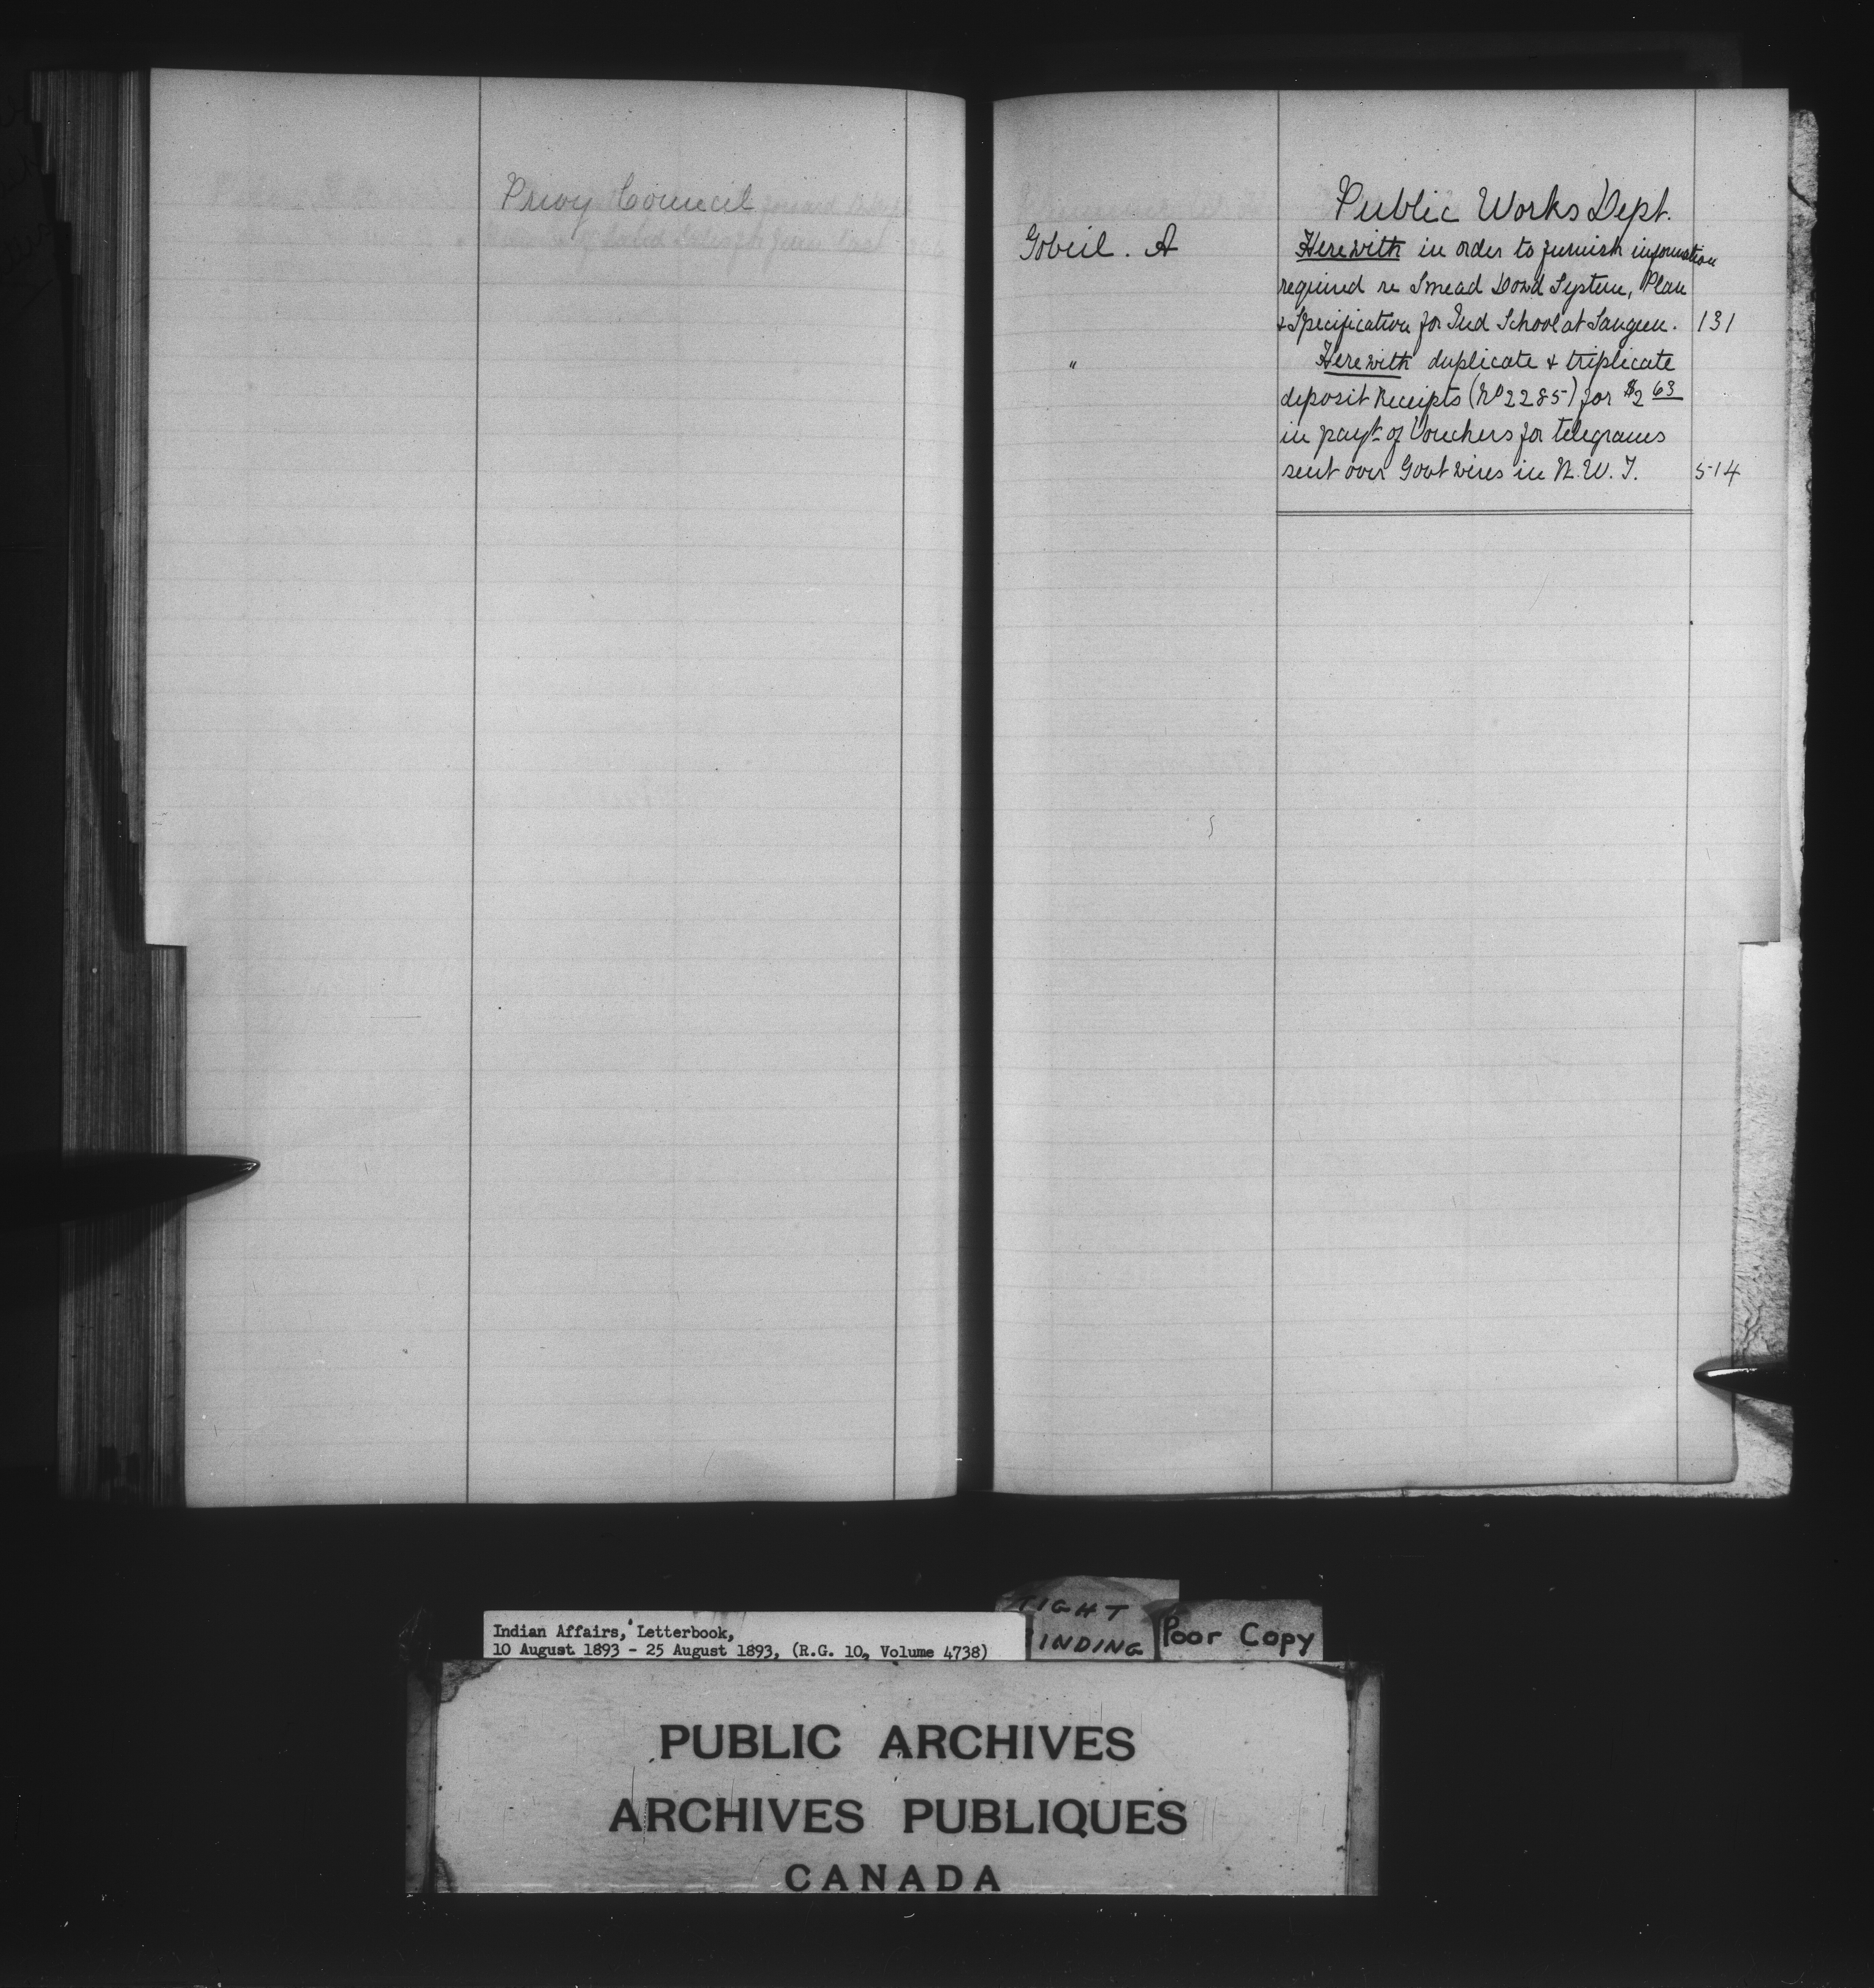 Privy Council
Public Works Dept.
Gobeil. A Herewith in order to furnish information
required re Smead Dowd System, Plan
& Specification for Ind School at Saugeen. 131
" Herewith duplicate & triplicate
deposit Receipts (No 2285) for $2 63
in payt of Vouchers for telegrams
sent over Govt wires in N. W. T. 514
TIGHT
BINDING
Poor Copy
Indian Affairs, Letterbook,
10 August 1893 - 25 August 1893, (R.G. 10, Volume 4738)
PUBLIC ARCHIVES
ARCHIVES PUBLIQUES
CANADA